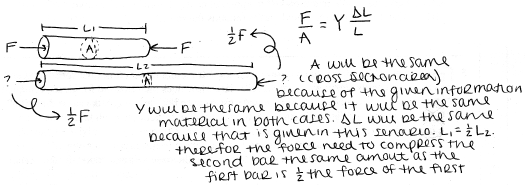 L₁
F A F
½f
F/A = Y ΔL/L
L₂
? A ?
½F
A will be the same
(cross section area)
because of the given information
Y will be the same because it will be the same
material in both cases. ΔL will be the same
because that is given in this senario. L₁ = ½ L₂.
therefor the force need to compress the
second bar the same amout as the
first bar is ½ the force of the first